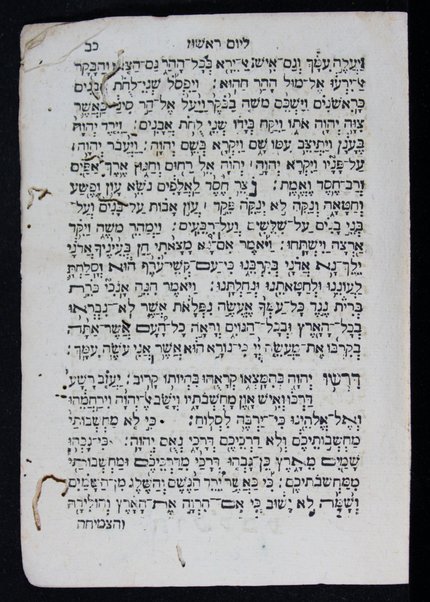 כב ליום ראשון
יעלה עמך וגם־איש אל־ירא בכל־ההר גם־הצאן והבקר
אל־ירעו אל־מול ההר ההוא׃ ויפסל שני־לחת אבנים
כראשנים וישכם משה בבקר ויעל אל־הר סיני כאשר
צוה יהוה אתו ויקח בידו שני לחת אבנים׃ וירד יהוה
בענן ויתיצב עמו שם ויקרא בשם יהוה׃ ויעבר יהוה׀
על־פניו ויקרא יהוה׀ יהוה אל רחום וחנון ארך אפים
ורב־חסד ואמת׃ נצר חסד לאלפים נשא עון ופשע
וחטאה ונקה לא ינקה פקד׀ עון אבות על־בנים ועל־
בני בנים על־שלשים ועל־רבעים׃ וימהר משה ויקד
ארצה וישתחו׃ ויאמר אם־נא מצאתי חן בעיניך אדני
ילך־נא אדני בקרבנו כי עם־קשה־ערף הוא וסלחת
לעוננו ולחטאתנו ונחלתנו׃ ויאמר הנה אנכי כרת
ברית נגד כל־עמך אעשה נפלאת אשר לא־נבראו
בכל־הארץ ובכל־הגוים וראה כל־העם אשר־אתה
בקרבו את־מעשה יי כי־נורא הוא אשר אני עשה עמך׃
דרשו יהוה בהמצאו קראהו בהיותו קרוב׃ יעזב רשע
דרכו ואיש און מחשבתיו וישב אל־יהוה וירחמהו
ואל־אלהינו כי־ירבה לסלוח׃ כי לא מחשבותי
מחשבותיכם ולא דרכיכם דרכי נאם יהוה׃ כי־גבהו
שמים מארץ כן־גבהו דרכי מדרכיכם ומחשבותי
ממחשבתיכם׃ כי כאשר ירד הגשם והשלג מן־השמים
ושמה לא ישוב כי אם־הרוה את־הארץ והולידה
והצמיחה